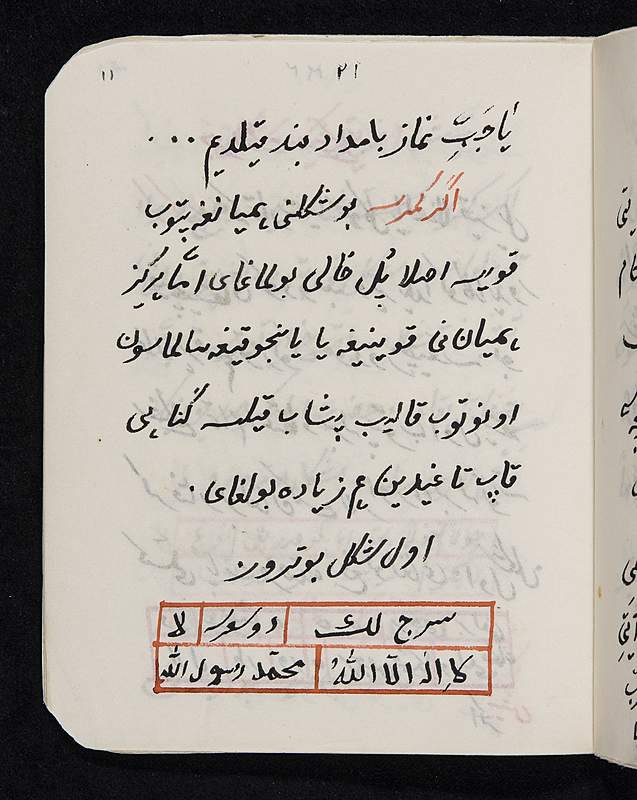 ۱۱ ۲۱
یُاجَبتِ نماز بامداد بند قیلدیم ...
اگر کمرسه بو شکلنی همیانغه تیتوب
قویسه اصلا پُل خالی بولماغای امّا هرگز
همیان نی قوینیغه یا یانجوقیغه سالماسون
اونوتوب قالیب پشاب قیلسه گناهی
قاپ تاغیدین هم زیاده بولغای .
اول شکل بوترور
سرج لك لا
لا اله الا الله محمّد رسول الله